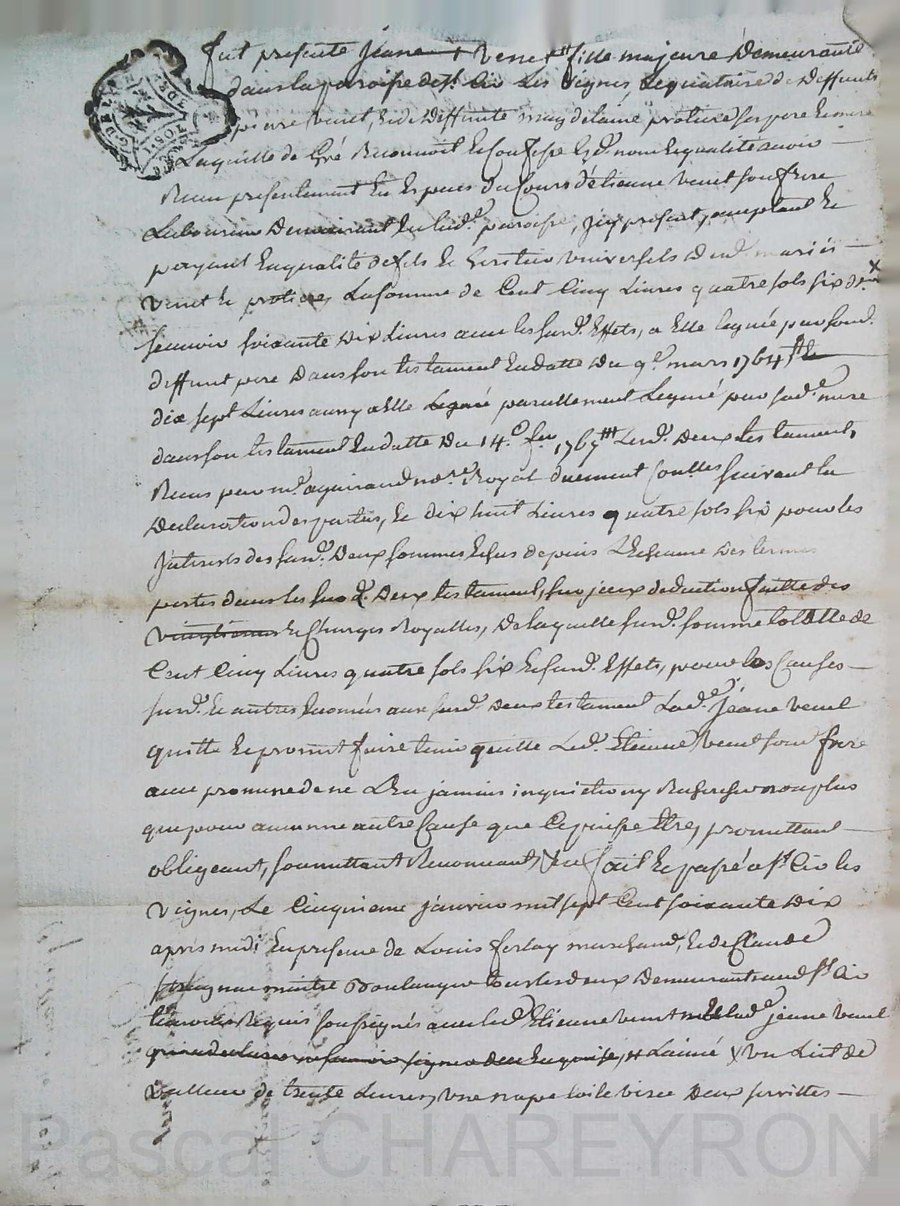 fut presente jéane + Venet fille majeure demeurante
dans la paroisse de st. Cir les Vignes, Legataire de deffunts
pierre Venet, & de deffunte magdelaine protiere ses pere & mere
Laquelle de Gré Reconnoit & Confesse Esd. nom & qualité avoir
Receu presentement En Especes du Cours d'étienne Venet son frere
Laboureur Demeurant En lad. paroisse, jcy present, acceptant &
payant En qualité de fils & heritier Universel desd. mariés
Venet & protiere, La somme de Cent Cinq Livres quatre sols six d.
scavoir soixante Dix Livres avec les susd. Effets, a Elle leguée par sond.
deffunt pere Dans son testament En datte Du 9e. mars 1764, &
dix sept Livres aussy a Elle Legué pareillement Legué par sad. mere
dans son testament En datte Du 14.e fer. 1767 Lesd. Deux testaments
Recus par me. aguiraud nore. Royal duement Conllés suivant la
Declaration des parties, & dix huit Livres quatre sols six pour les
jnterets des susd. Deux sommes Echus depuis L'Echeance des termes
portés dans les susd. Deux testaments, sur jceux deduction faitte des
vingtiemes & Charges Royalles, De laquelle susd. somme totalle de
Cent Cinq Livres quatre sols six & susd. Effets, pour les Causes
susd. & autres Enoncés aux susd. Deux testaments Lad. jéane Venet
quitte & promet faire tenir quitte Led. Etienne Venet son frere
avec promesse de ne L'En jamais inquieter ny Rechercher non plus
que pour aucune autre Cause que Ce puisse Etre, promettant
obligeant, soumettant Renonceant, &c. fait & passé a st. Cir les
Vignes, Le Cinquieme janvier mil sept Cent soixante Dix
apres midi En presence de Louis ferlay marchand, & de Claude
maitre Boulanger tous les deux Demeurants aud. st. Cir
temoins Requis soussignés avec led. Etienne Venet & lad. jeane Venet
qui a declaré ne scavoir signer de ce Enquise, X Un Lict de
Valleur de trente Livres, Une nape toile Deux serviettes
Pascal CHAREYRON